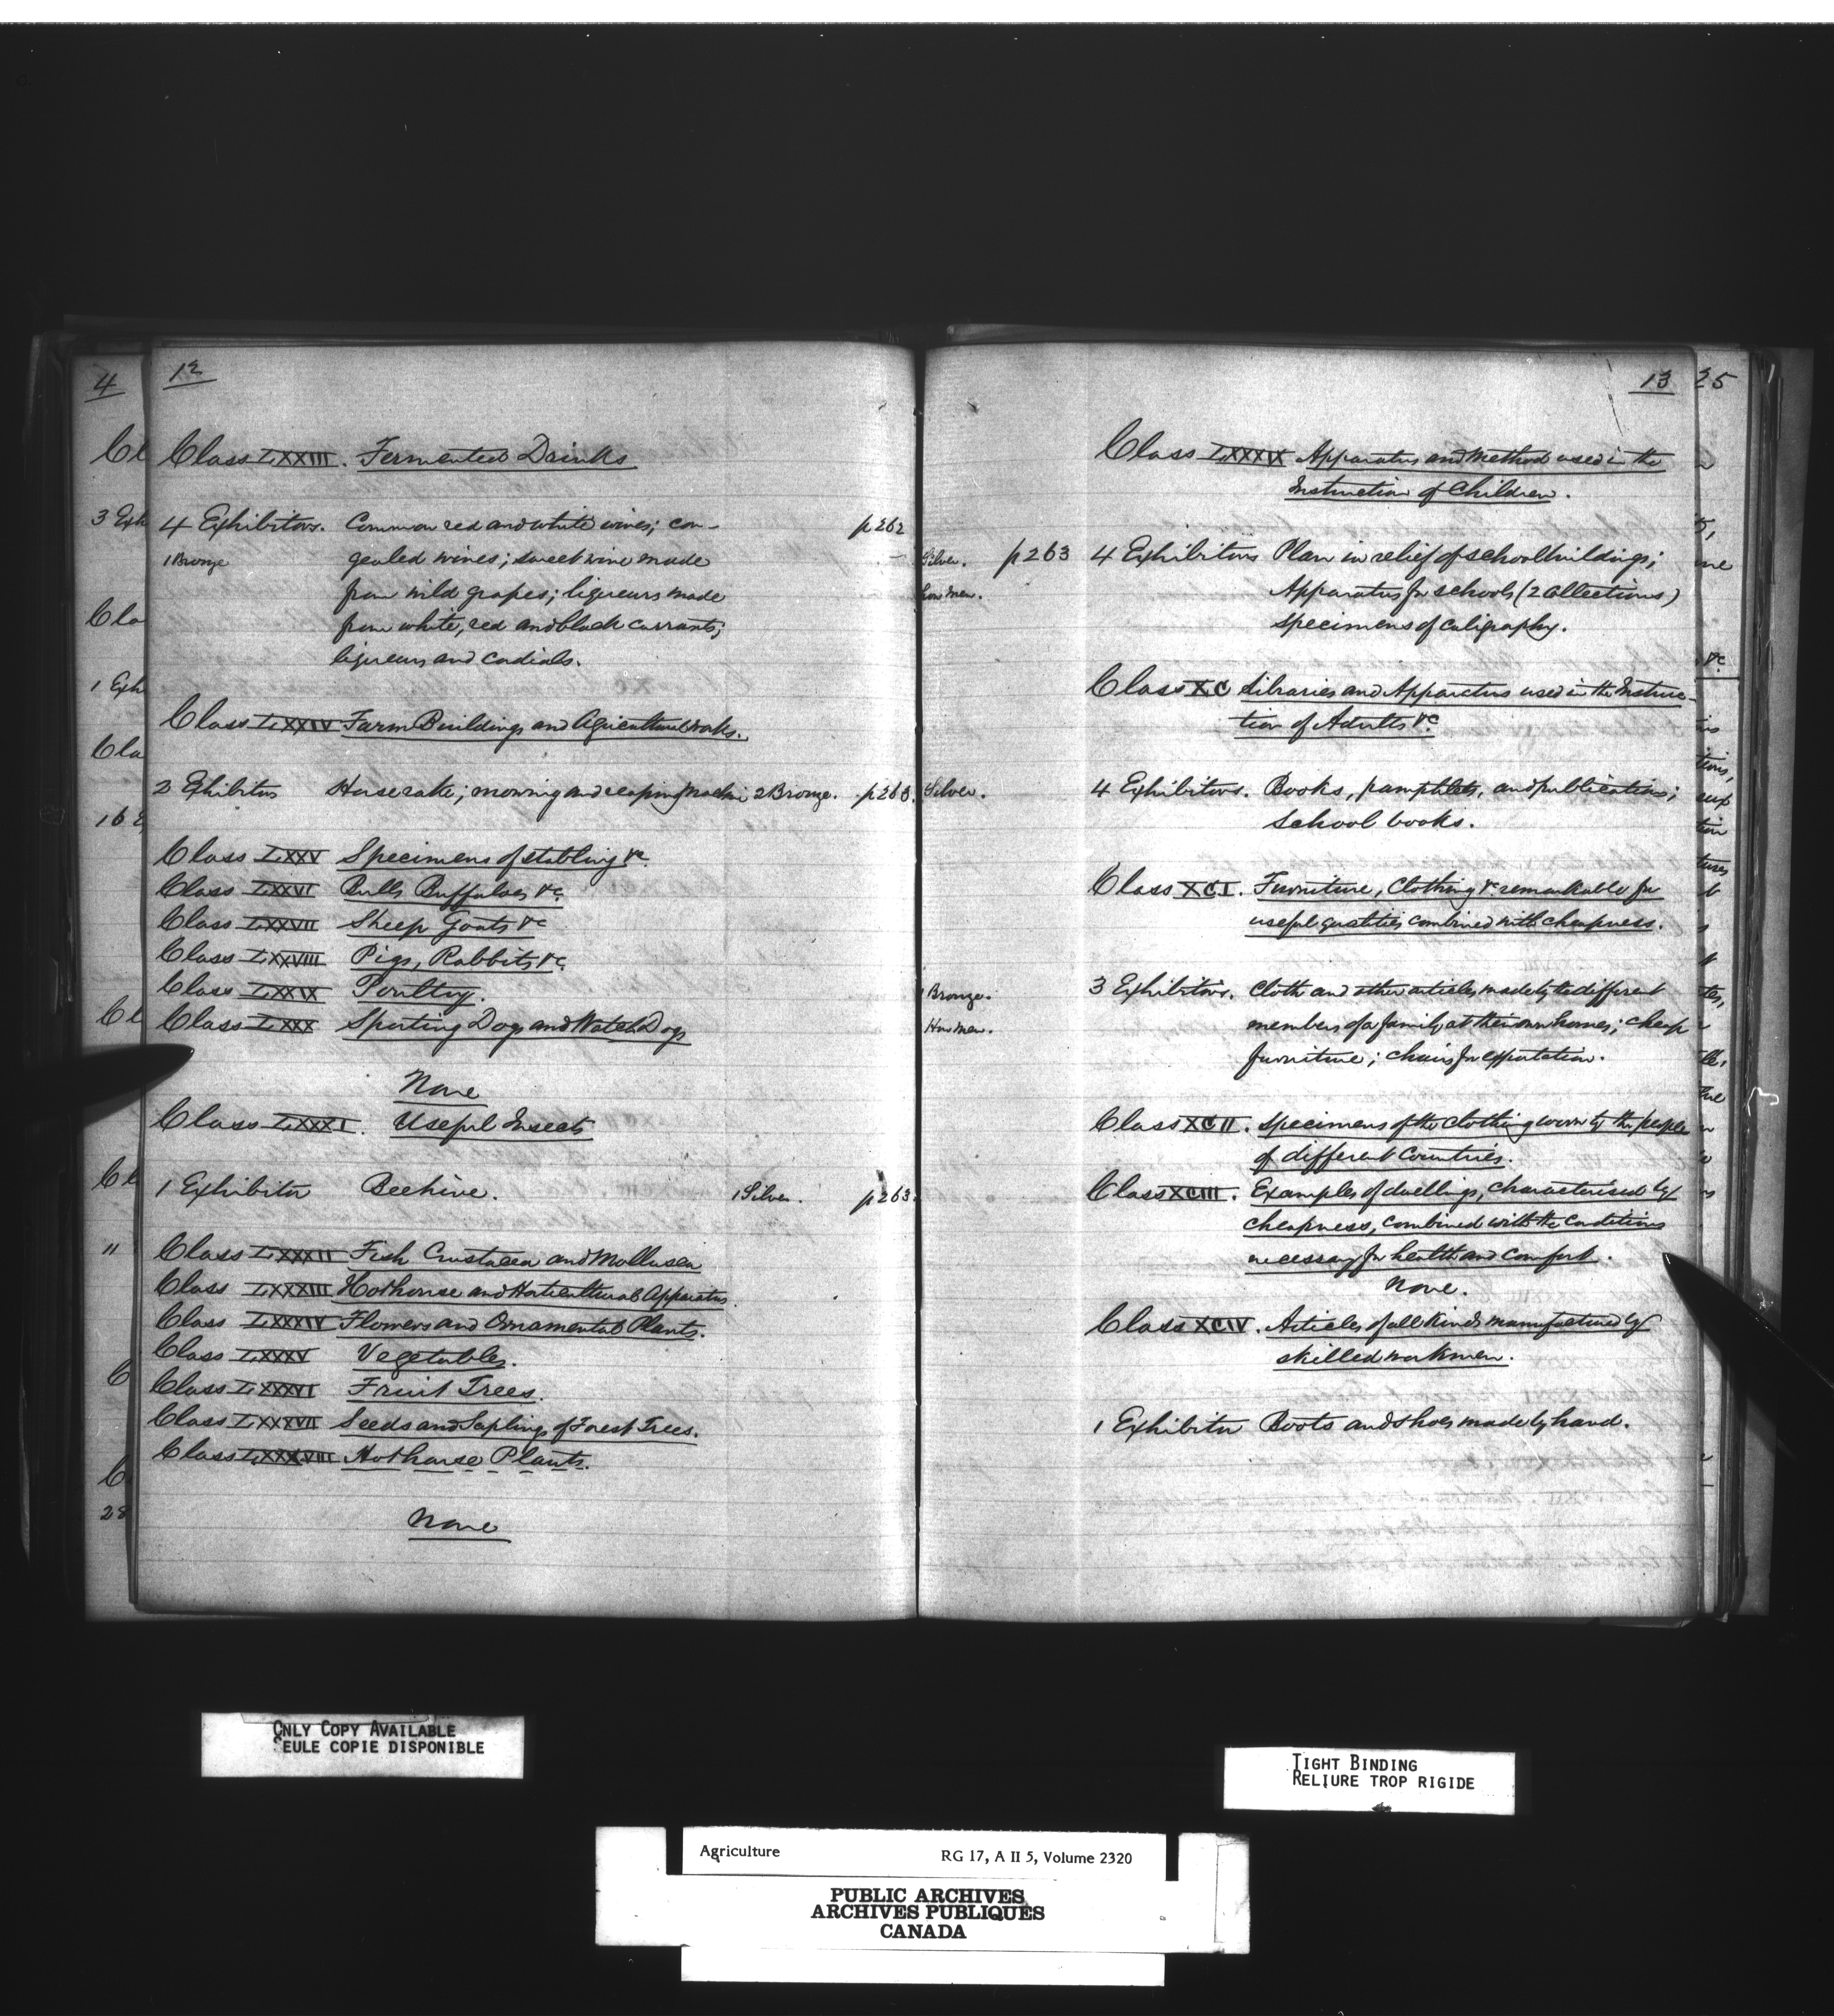 12
Class LXXIII. Fermented Drinks
4 Exhibitors. Common red and white wines; con- p262
1 Bronze gealed wines; sweet wine made
from wild grapes; liqueurs made
from white, red and black currants;
liqueurs and cordials.
Class LXXIV Farm Buildings and Agricultural works.
2 Exhibitors Horse rake; mowing and reaping machine 2 Bronze. p263.
Class LXXV Specimens of stabling &c
Class LXXVI Bulls Buffaloes &c
Class LXXVII Sheep Goats &c
Class LXXVIII Pigs, Rabbits &c
Class LXXIX Poultry.
Class LXXX Sporting Dogs and Watch Dogs
None
Class LXXXI. Useful Insects
1 Exhibitor Beehive. 1 Silver. p263.
Class LXXXII Fish Crustacea and Mollusca
Class LXXXIII Hothouse and Horticultural Apparatus.
Class LXXXIV Flowers and Ornamental Plants.
Class LXXXV Vegetables.
Class LXXXVI Fruit Trees.
Class LXXXVII Seeds and Saplings of Forest Trees.
Class LXXXVIII Hothouse Plants.
None
13
Class LXXXIX Apparatus and Method used in the
Instruction of Children.
Silver. p263 4 Exhibitors Plan in relief of school buildings;
Hon Men. Apparatus for schools (2 Collections)
specimens of caligraphy.
Class XC Libraries and Apparatus used in the Instruc-
tion of Adults &c
Silver. 4 Exhibitors. Books, pamphlets, and publications;
School books.
Class XCI. Furniture, Clothing &c remarkable for
useful qualities combined with cheapness.
1 Bronze. 3 Exhibitors. Cloth and other articles made by the different
Hon Men. members of a family at their own homes; cheap
furniture; chairs for exportation.
Class XCII. Specimens of the clothing worn by the people
of different Countries.
Class XCIII. Examples of dwellings, characterised by
cheapness, combined with the Conditions
necessary for health and comfort.
None.
Class XCIV. Articles of all kinds manufactured by
skilled workmen.
1 Exhibitor Boots and shoes made by hand.
4
3 Exh
1 Exh
28
25
ONLY COPY AVAILABLE
SEULE COPIE DISPONIBLE
TIGHT BINDING
RELIURE TROP RIGIDE
Agriculture RG 17, A II 5, Volume 2320
PUBLIC ARCHIVES
ARCHIVES PUBLIQUES
CANADA